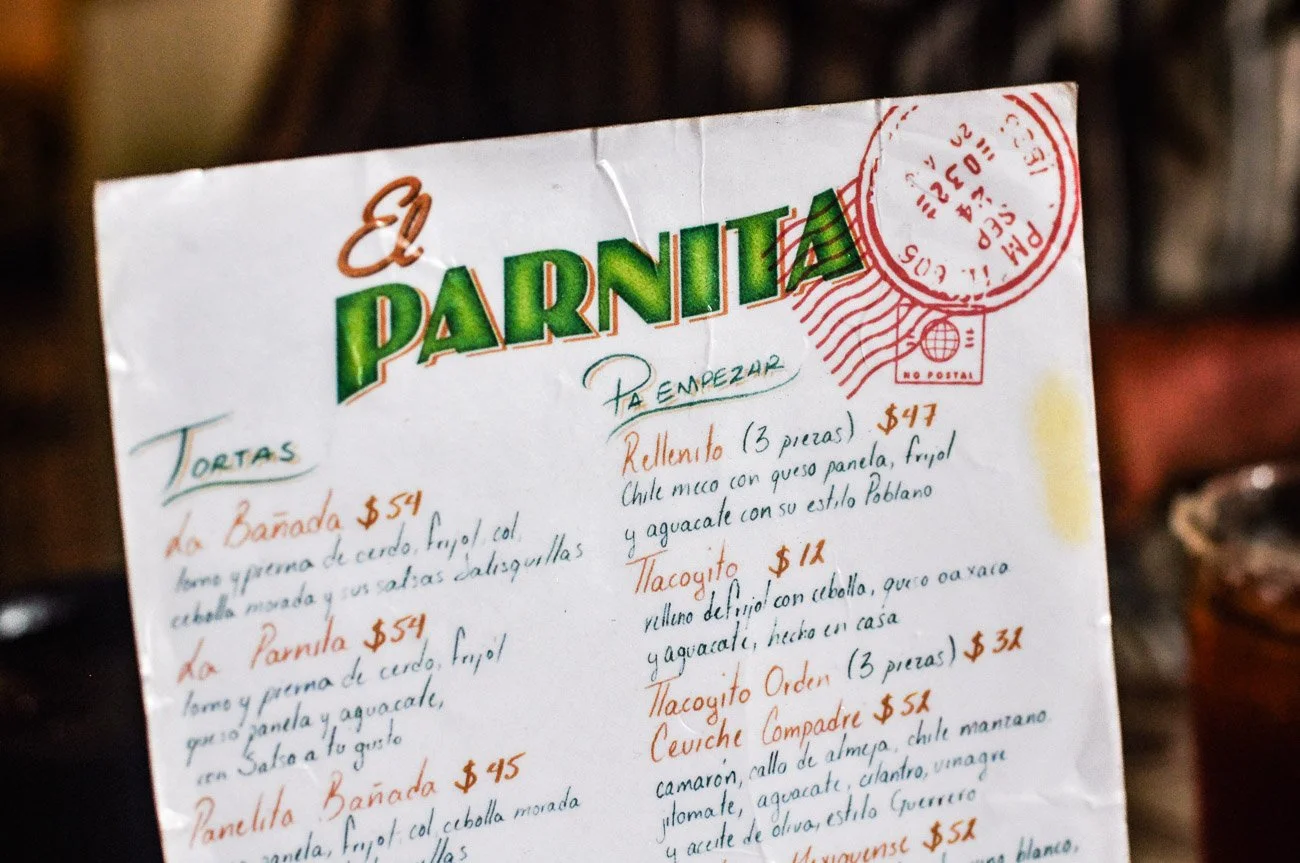 El
PARNITA
PM
SEP
24
NO POSTAL
TORTAS
La Bañada $54
lomo y pierna de cerdo, frijol, col,
cebolla morada y sus salsas Jalisquillas
La Parnita $54
lomo y pierna de cerdo, frijol
queso panela y aguacate,
con Salsa a tu gusto
Panelita Bañada $45
panela, frijol, col, cebolla morada
PA EMPEZAR
Rellenito (3 piezas) $47
Chile meco con queso panela, frijol
y aguacate con su estilo Poblano
Tlacoyito $12
relleno de frijol con cebolla, queso oaxaca
y aguacate, hecho en casa
Tlacoyito Orden (3 piezas) $32
Ceviche Compadre $52
camarón, callo de almeja, chile manzano
jitomate, aguacate, cilantro, vinagre
y aceite de oliva, estilo Guerrero
$52
blanco,